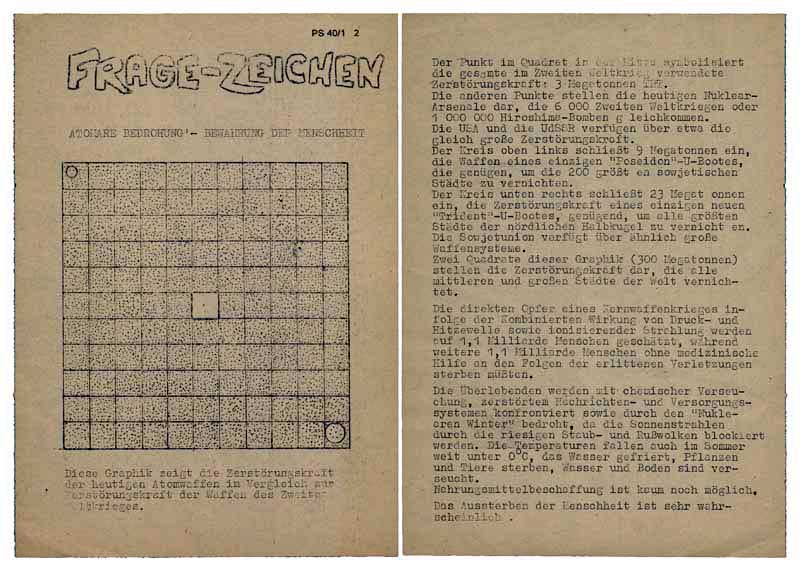 PS 40/1 2
FRAGE-ZEICHEN
ATOMARE BEDROHUNG'- BEWAHRUNG DER MENSCHHEIT
Diese Graphik zeigt die Zerstörungskraft
der heutigen Atomwaffen im Vergleich zur
Zerstörungskraft der Waffen des Zweiten
Weltkrieges.
Der Punkt im Quadrat in der Mitte symbolisiert
die gesamte im Zweiten Weltkrieg verwendete
Zerstörungskraft: 3 Megatonnen TNT.
Die anderen Punkte stellen die heutigen Nuklear-
Arsenale dar, die 6 000 Zweiten Weltkriegen oder
1 000 000 Hiroshima-Bomben g leichkommen.
Die USA und die UdSSR verfügen über etwa die
gleich große Zerstörungskraft.
Der Kreis oben links schließt 9 Megatonnen ein,
die Waffen eines einzigen "Poseidon"-U-Bootes,
die genügen, um die 200 größt en sowjetischen
Städte zu vernichten.
Der Kreis unten rechts schließt 23 Megat onnen
ein, die Zerstörungskraft eines einzigen neuen
"Trident"-U-Bootes, genügend, um alle größten
Städte der nördlichen Halbkugel zu vernicht en.
Die Sowjetunion verfügt über ähnlich große
Waffensysteme.
Zwei Quadrate dieser Graphik (300 Megatonnen)
stellen die Zerstörungskraft dar, die alle
mittleren und großen Städte der Welt vernich-
tet.
Die direkten Opfer eines Kernwaffenkrieges in-
folge der Kombinierten Wirkung von Druck- und
Hitzewelle sowie ionizierender Strahlung werden
auf 1,1 Milliarde Menschen geschätzt, während
weitere 1,1 Milliarde Menschen ohne medizinische
Hilfe an den Folgen der erlittenen Verletzungen
sterben müßten.
Die Überlebenden werden mit chemischer Verseu-
chung, zerstörtem Nachrichten- und Versorgungs-
systemen konfrontiert sowie durch den "Nukle-
aren Winter" bedroht, da die Sonnenstrahlen
durch die riesigen Staub- und Rußwolken blockiert
werden. Die Temperaturen fallen auch im Sommer
weit unter 0°C, das Wasser gefriert, Pflanzen
und Tiere sterben, Wasser und Boden sind ver-
seucht.
Nahrungsmittelbeschaffung ist kaum noch möglich.
Das Aussterben der Menschheit ist sehr wahr-
scheinlich .